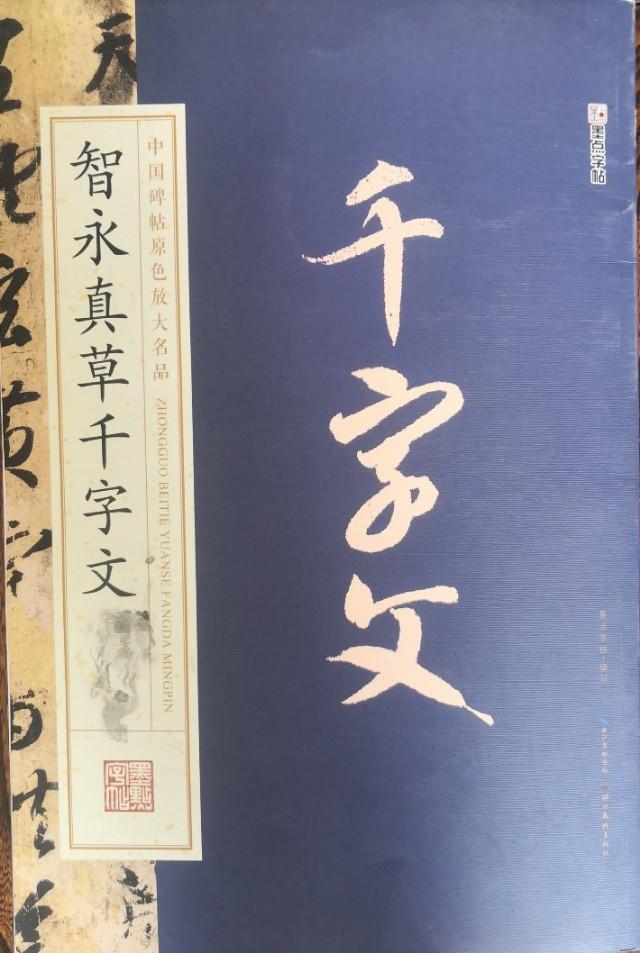 墨点字帖
千字文
智永真草千字文
中国碑帖原色放大名品
ZHONGGUO BEITIE YUANSE FANGDA MINGPIN
墨點字帖
墨点字帖·编写
天
玄黄
字